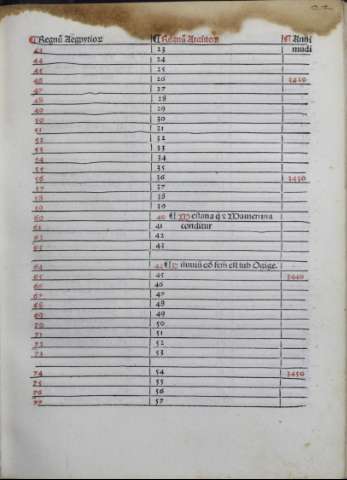 ¶ Regnū Aegyptioꝝ ¶ Regnū ¶ Anni
mudi
43 23
44 24
45 25
46 26 3420
47 27
48 28
49 29
50 30
51 31
52 32
53 33
54 34
55 35
56 36 3430
57 37
58 38
59 39
60 40 ¶
61 41 conditur
62 42
63 43
64 44 ¶ est sub Ogige.
65 45 3440
66 46
67 47
68 48
69 49
70 50
71 51
72 52
73 53
74 54 3450
75 55
76 56
77 57